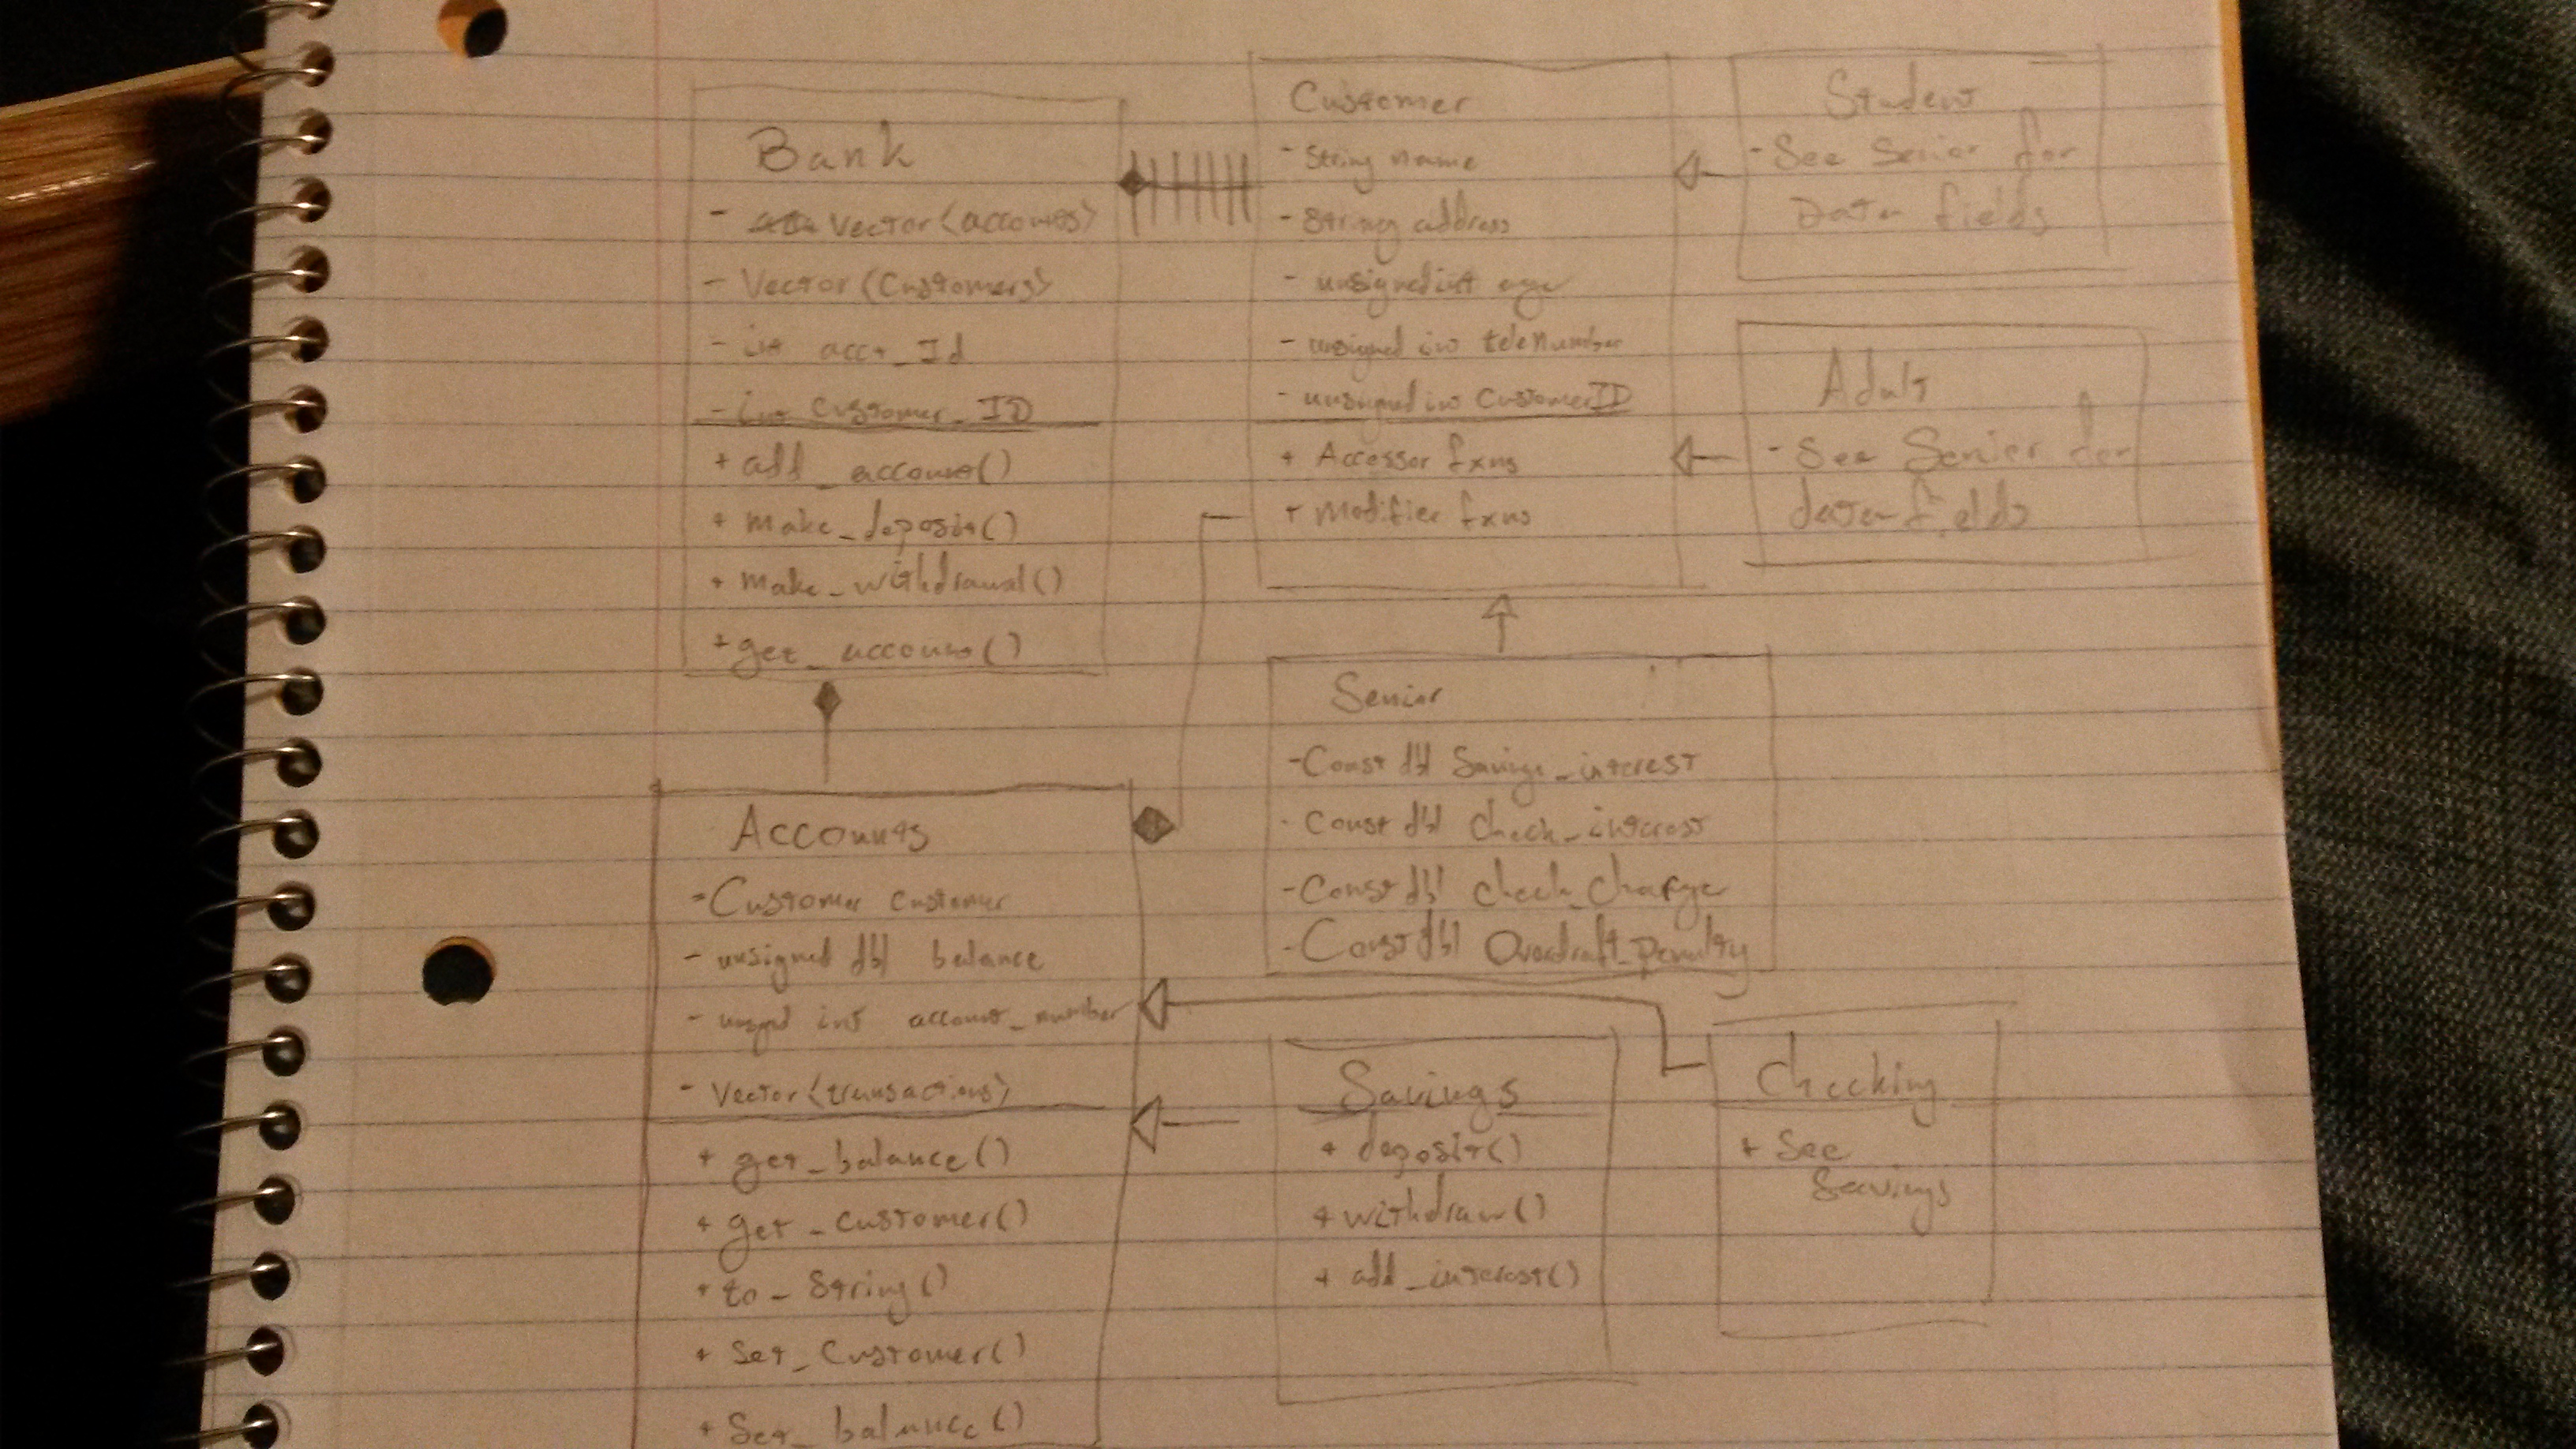 Bank
- Vector<accounts>
- Vector<Customers>
- int acct_Id
- int Customer_ID
+ add_account()
+ make_deposit()
+ make_withdrawal()
+ get_account()
Customer
- String name
- String address
- unsigned int age
- unsigned int teleNumber
- unsigned int CustomerID
+ Accessor fxns
+ Modifier fxns
Student
- See Senior for
Data fields
Adult
- See Senior for
data fields
Senior
- Const dbl Savings_interest
- Const dbl Check_interest
- Const dbl Check_Charge
- Const dbl Overdraft_Penalty
Accounts
- Customer customer
- unsigned dbl balance
- int account_number
- Vector<transactions>
+ get_balance()
+ get_customer()
+ to_String()
+ Set_Customer()
+ Set_balance()
Savings
+ deposit()
+ withdraw()
+ add_interest()
Checking
+ See
Savings